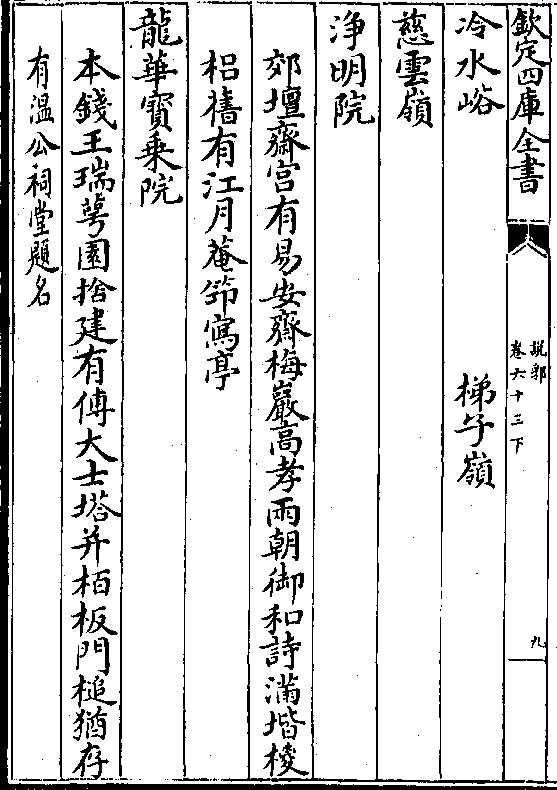 欽定四庫全書
說郛
卷六十三下
九
冷水峪　梯子嶺
慈雲嶺
淨明院
郊壇齋宮有易安齋梅巖高孝兩朝御和詩滿堦棱
梠禧有江月菴筇寫亭
龍華寳乗院
本錢王瑞萼園捨建有傅大士塔并栢板門槌猶存
有溫公祠堂題名